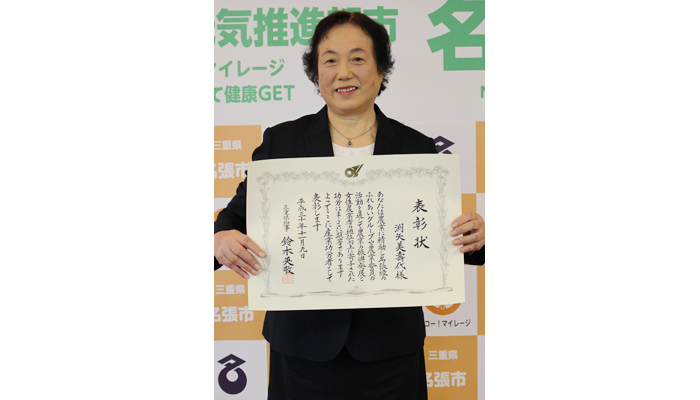 気推進都市
マイレージ
て健康GET
名
三重県
名張市
表彰状
渕矢美壽代様
あなたは農業に精励し名張の
ふれあいグループや農業委員の
活動を通じて農業の振興発展と
女性農業者の地位向上に寄与された
功労はまことに顕著であります
よってここに産業功労者として
表彰します
平成三十年十一月九日
三重県知事 鈴木英敬
名張市
コー！マイレージ
三重県
名張市